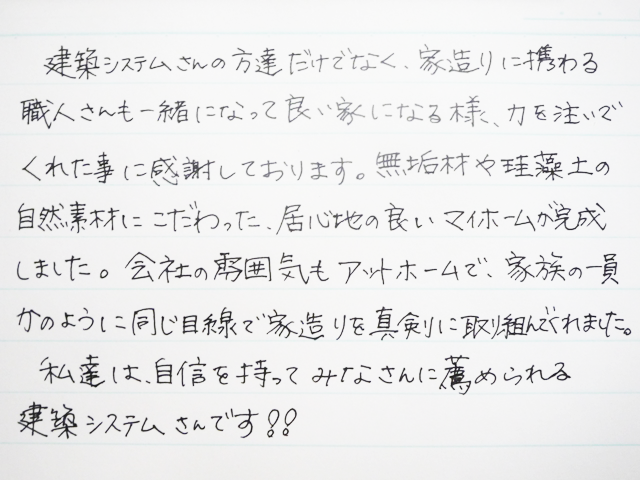 建築システムさんの方達だけでなく、家造りに携わる
職人さんも一緒になって良い家になる様、力を注いで
くれた事に感謝しております。無垢材や珪藻土の
自然素材にこだわった、居心地の良いマイホームが完成
しました。会社の雰囲気もアットホームで、家族の一員
かのように同じ目線で家造りを真剣に取り組んでくれました。
私達は、自信を持ってみなさんに薦められる
建築システムさんです!!